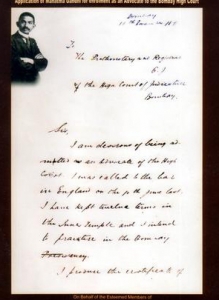 Application of Mahatma Gandhi for enrollment as an Advocate to the Bombay High Court
Bombay
To,
The Prothonotary and Registrar
of the High Court of Judicature
Bombay.
Sir,
I am desirous of being ad-
mitted as an Advocate of the High
Court. I was called to the bar
in England on the 10th June last.
I have kept twelve terms in
the Inner Temple and I intend
to practise in the Bombay
Presidency.
I produce the certificate of
On Behalf of the Esteemed Members of